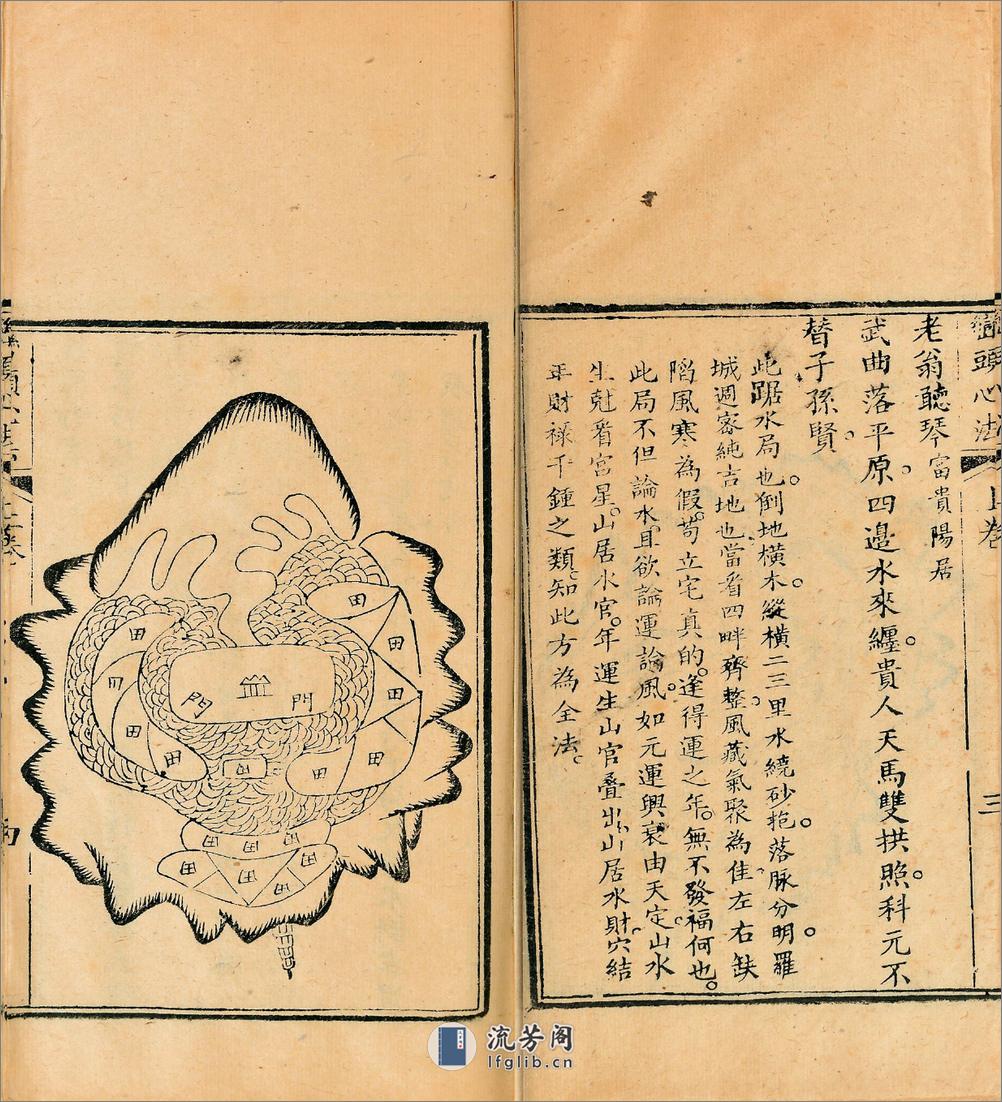 巒頭心法 上卷 三
老翁聽琴 富貴陽居
武曲落平原。四邉水來纏。貴人天馬雙拱照。科元不
替子孫賢。
此踞水局也。倒地橫木。縱橫二三里水繞砂抱。落脉分明。羅
城週密純吉地也。當看四畔齊整。風藏氣聚為佳。左右缺
陷風寒為假。苟立宅真的。逢得運之年。無不發福何也。
此局不但論水。且欲論運論風。如元運興衰由天定。山水
生尅看宮星。山居水官。年運生山官叠出。山居水財。穴結
年財祿千鍾之類。知此方為全法。
田
田
田
田
田
田
門
門
田
田
田
田
田
田
田
田
流芳阁
lfglib.cn